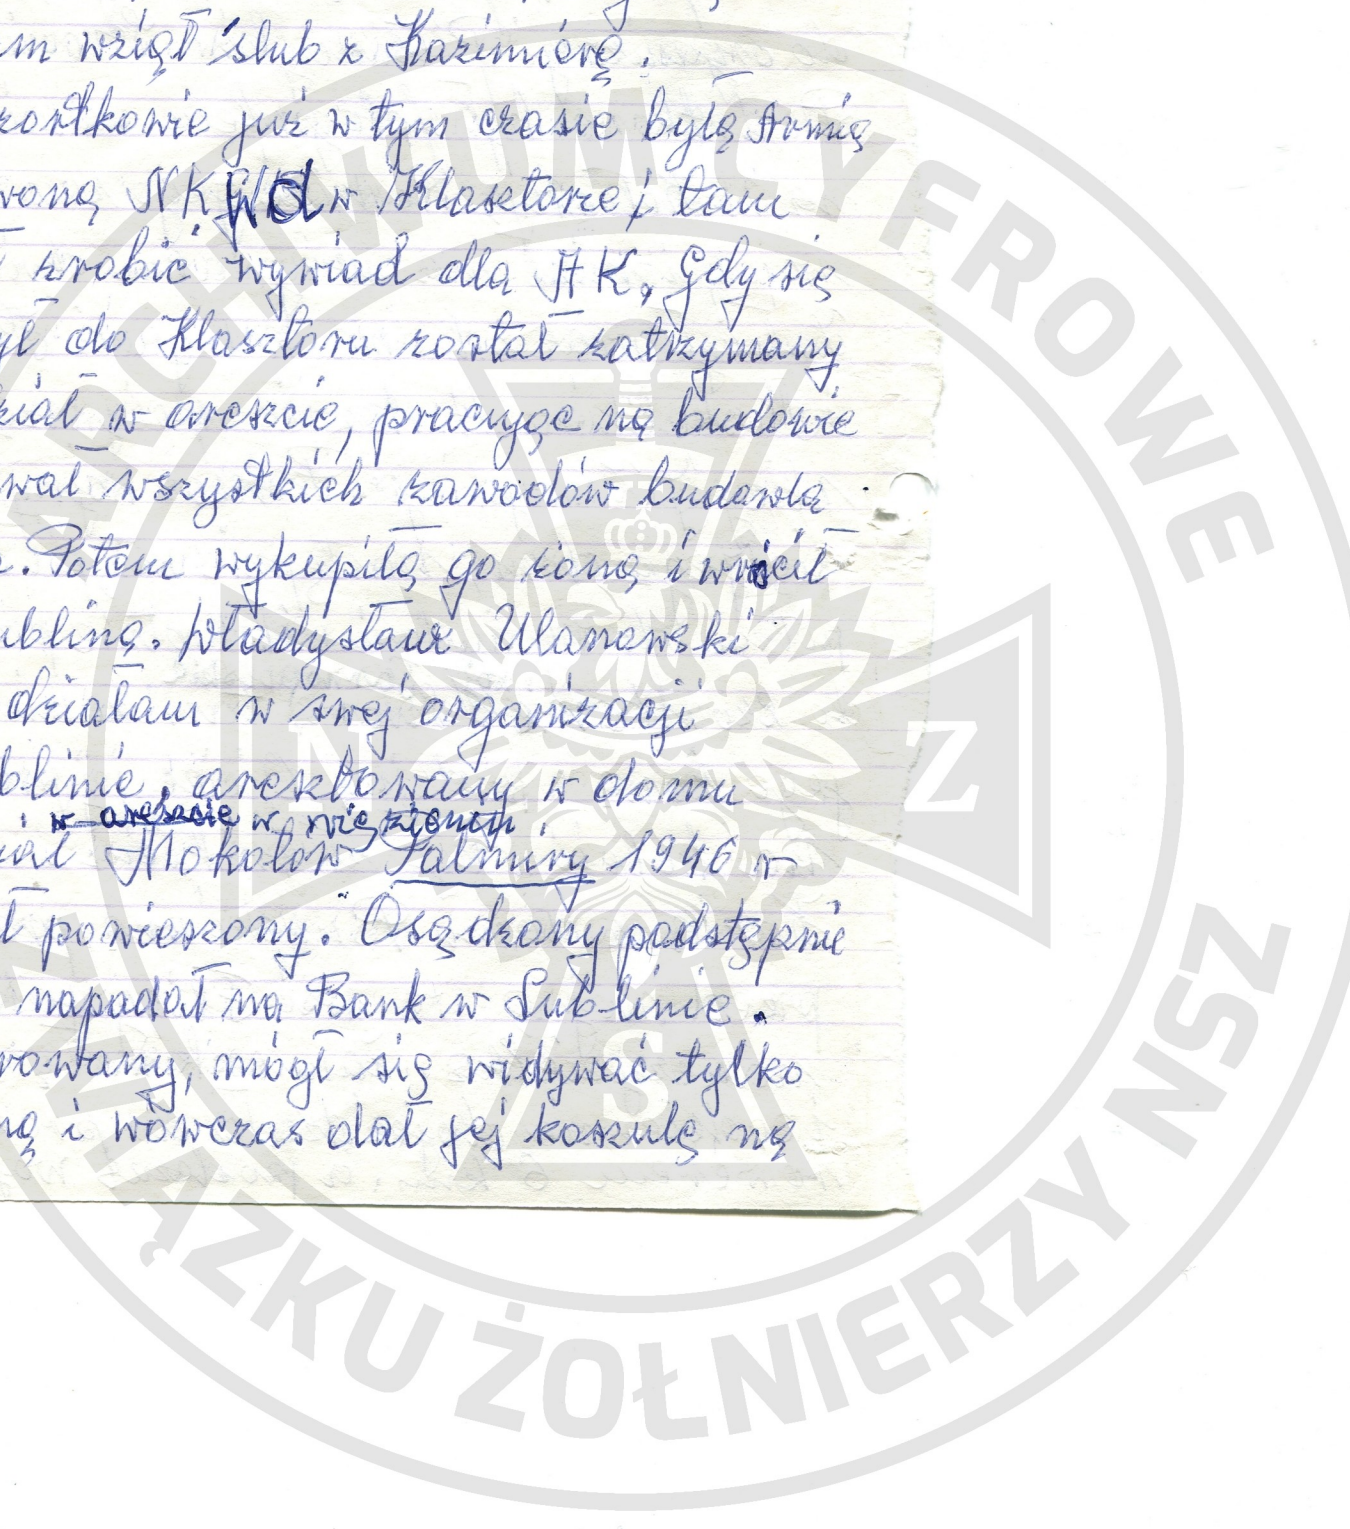 m wziął ślub z Kazimierą.
rostkowie już w tym czasie była Armia
woną NKWD w Klasztorze i tam
zrobić wywiad dla AK, gdy się
ył do Klasztoru został zatrzymany
ział w areszcie, pracując na budowie
wał wszystkich zawodów budowla
. Potem wykupiła go żona i wrócił
ublina. Władysław Ulanowski
działam w swej organizacji
blinie, aresztowany w domu
w areszcie w więzieniu
ał Mokotów Palmiry 1946 r
ł powieszony. Osądzony podstępnie
napadał na Bank w Lublinie.
rowany, mógł się widywać tylko
ną i wówczas dał jej koszulę na
ARCHIWUM CYFROWE
ZWIĄZKU ŻOŁNIERZY NSZ
N Z
S